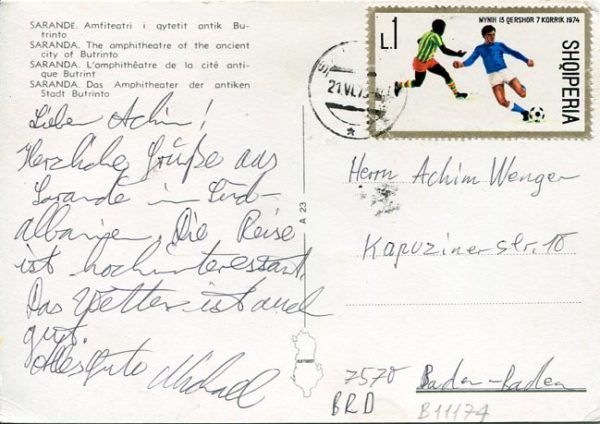 SARANDE. Amfiteatri i qytetit antik Bu-
trinto
SARANDA. The amphitheatre of the ancient
city of Butrinto
SARANDA. L'amphithéâtre de la cité anti-
que Butrint
SARANDA. Das Amphitheater der antiken
Stadt Butrinto
Lieber Achim!
Herzliche Grüße aus
Sarande in Süd-
albanien. Die Reise
ist hochinteressant.
Das Wetter ist auch
gut.
Alles Gute Michael
A 23
L.1
MYNIH 15 QERSHOR 7 KORRIK 1974
SHQIPERIA
21.VI.75
Herrn Achim Wenger
Kapuzinerstr. 10
7570 Baden-Baden
BRD
B11174